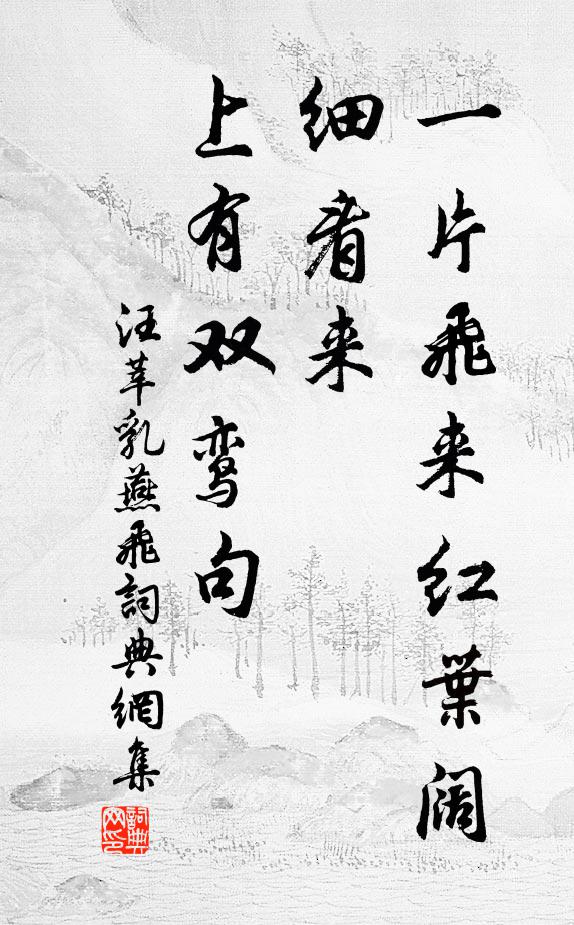 一片飛来红葉阔
细看来
上有双鸾句
汪莘乳燕飛詞典網集
詞典網印